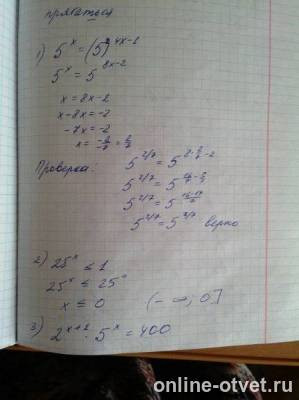 прятаться
1) 5^x = (5)^2 4x-1
5^x = 5^8x-2
x = 8x-2
x-8x = -2
-7x = -2
x = -2/-7 = 2/7
Проверка: 5^2/7 = 5^8·2/7-2
5^2/7 = 5^16/7-2
5^2/7 = 5^16-14/7
5^2/7 = 5^2/7 верно
2) 25^x ≤ 1
25^x ≤ 25^0
x ≤ 0 (-∞, 0]
3) 2^x+2 · 5^x = 400
online-otvet.ru